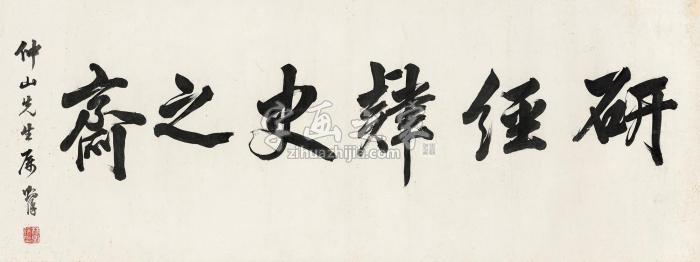 研經肄史之齋
仲山先生属
zihuazhijia.com